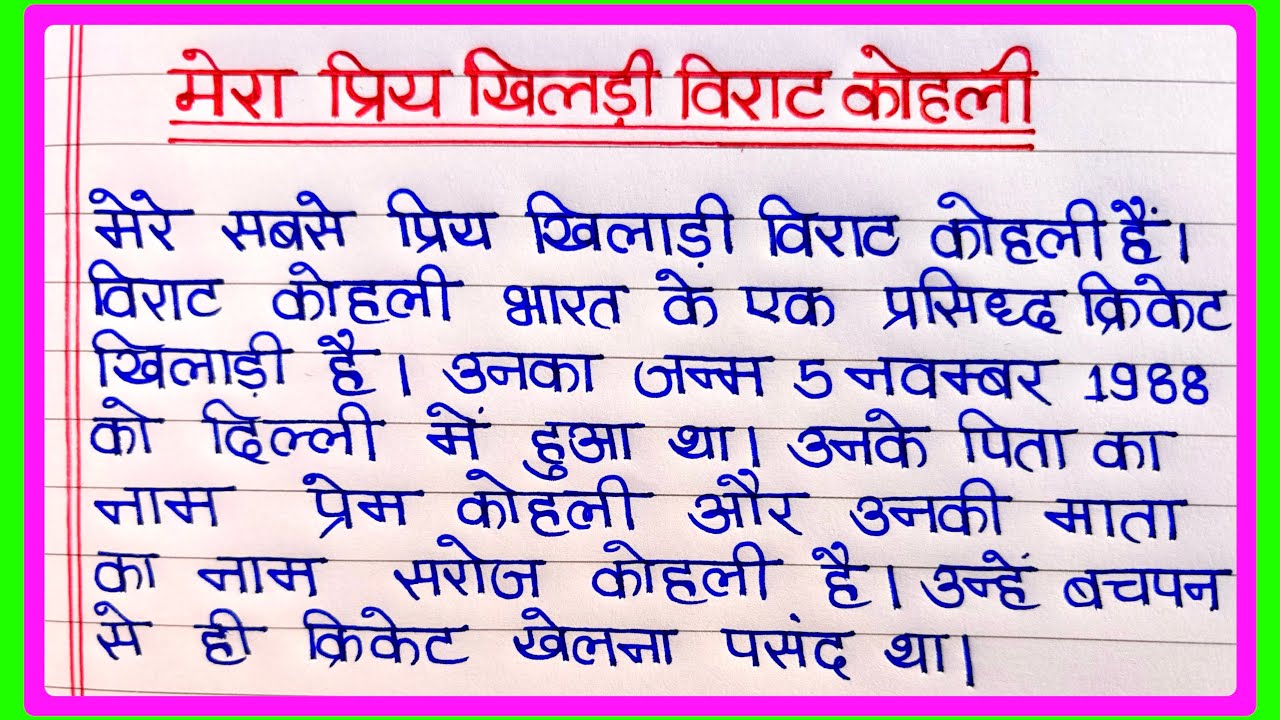 मेरा प्रिय खिलड़ी विराट कोहली
मेरे सबसे प्रिय खिलाड़ी विराट कोहली हैं।
विराट कोहली भारत के एक प्रसिध्द क्रिकेट
खिलाड़ी है। उनका जन्म 5 नवम्बर 1988
को दिल्ली में हुआ था। उनके पिता का
नाम प्रेम कोहली और उनकी माता
का नाम सरोज कोहली है। उन्हें बचपन
से ही क्रिकेट खेलना पसंद था।